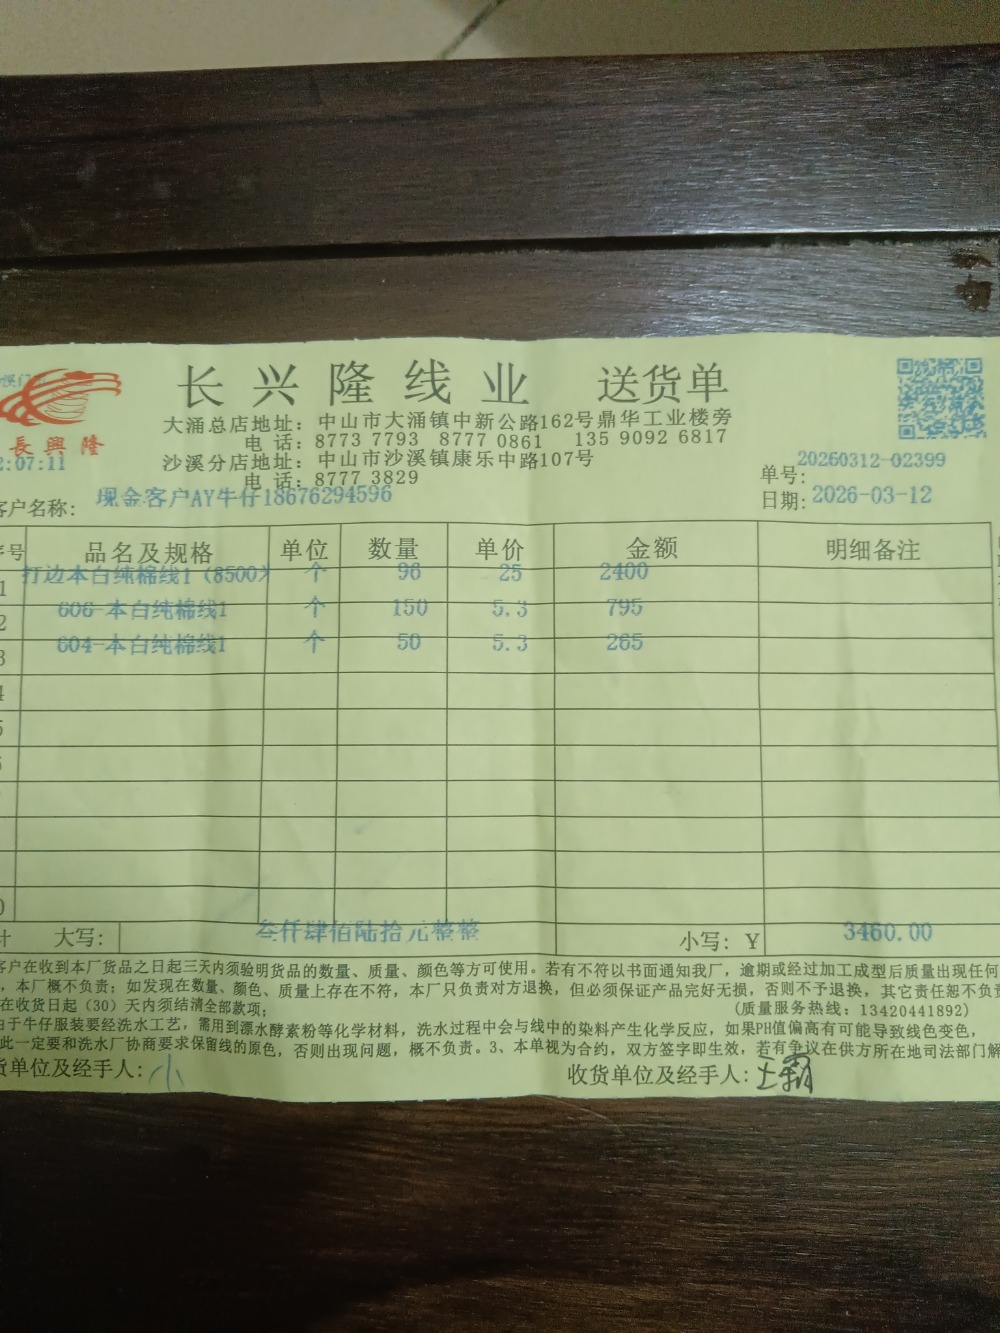 长兴隆线业 送货单
長興隆
大涌总店地址：中山市大涌镇中新公路162号鼎华工业楼旁
电话：8773 7793 8777 0861 135 9092 6817
沙溪分店地址：中山市沙溪镇康乐中路107号
电话：8777 3829
2:07:11
单号：20260312-02399
客户名称：现金客户AY牛仔18676294596
日期：2026-03-12
号 品名及规格 单位 数量 单价 金额 明细备注
1 打边本白纯棉线1（8500 个 96 25 2400
2 606-本白纯棉线1 个 150 5.3 795
3 604-本白纯棉线1 个 50 5.3 265
4
5
计 大写：叁仟肆佰陆拾元整整 小写：Y 3460.00
客户在收到本厂货品之日起三天内须验明货品的数量、质量、颜色等方可使用。若有不符以书面通知我厂，逾期或经过加工成型后质量出现任何
，本厂概不负责；如发现在数量、颜色、质量上存在不符，本厂只负责对方退换，但必须保证产品完好无损，否则不予退换，其它责任恕不负责
在收货日起（30）天内须结清全部款项； （质量服务热线：13420441892）
由于牛仔服装要经洗水工艺，需用到漂水酵素粉等化学材料，洗水过程中会与线中的染料产生化学反应，如果PH值偏高有可能导致线色变色，
此一定要和洗水厂协商要求保留线的原色，否则出现问题，概不负责。3、本单视为合约，双方签字即生效，若有争议在供方所在地司法部门解
货单位及经手人：小 收货单位及经手人：王霸